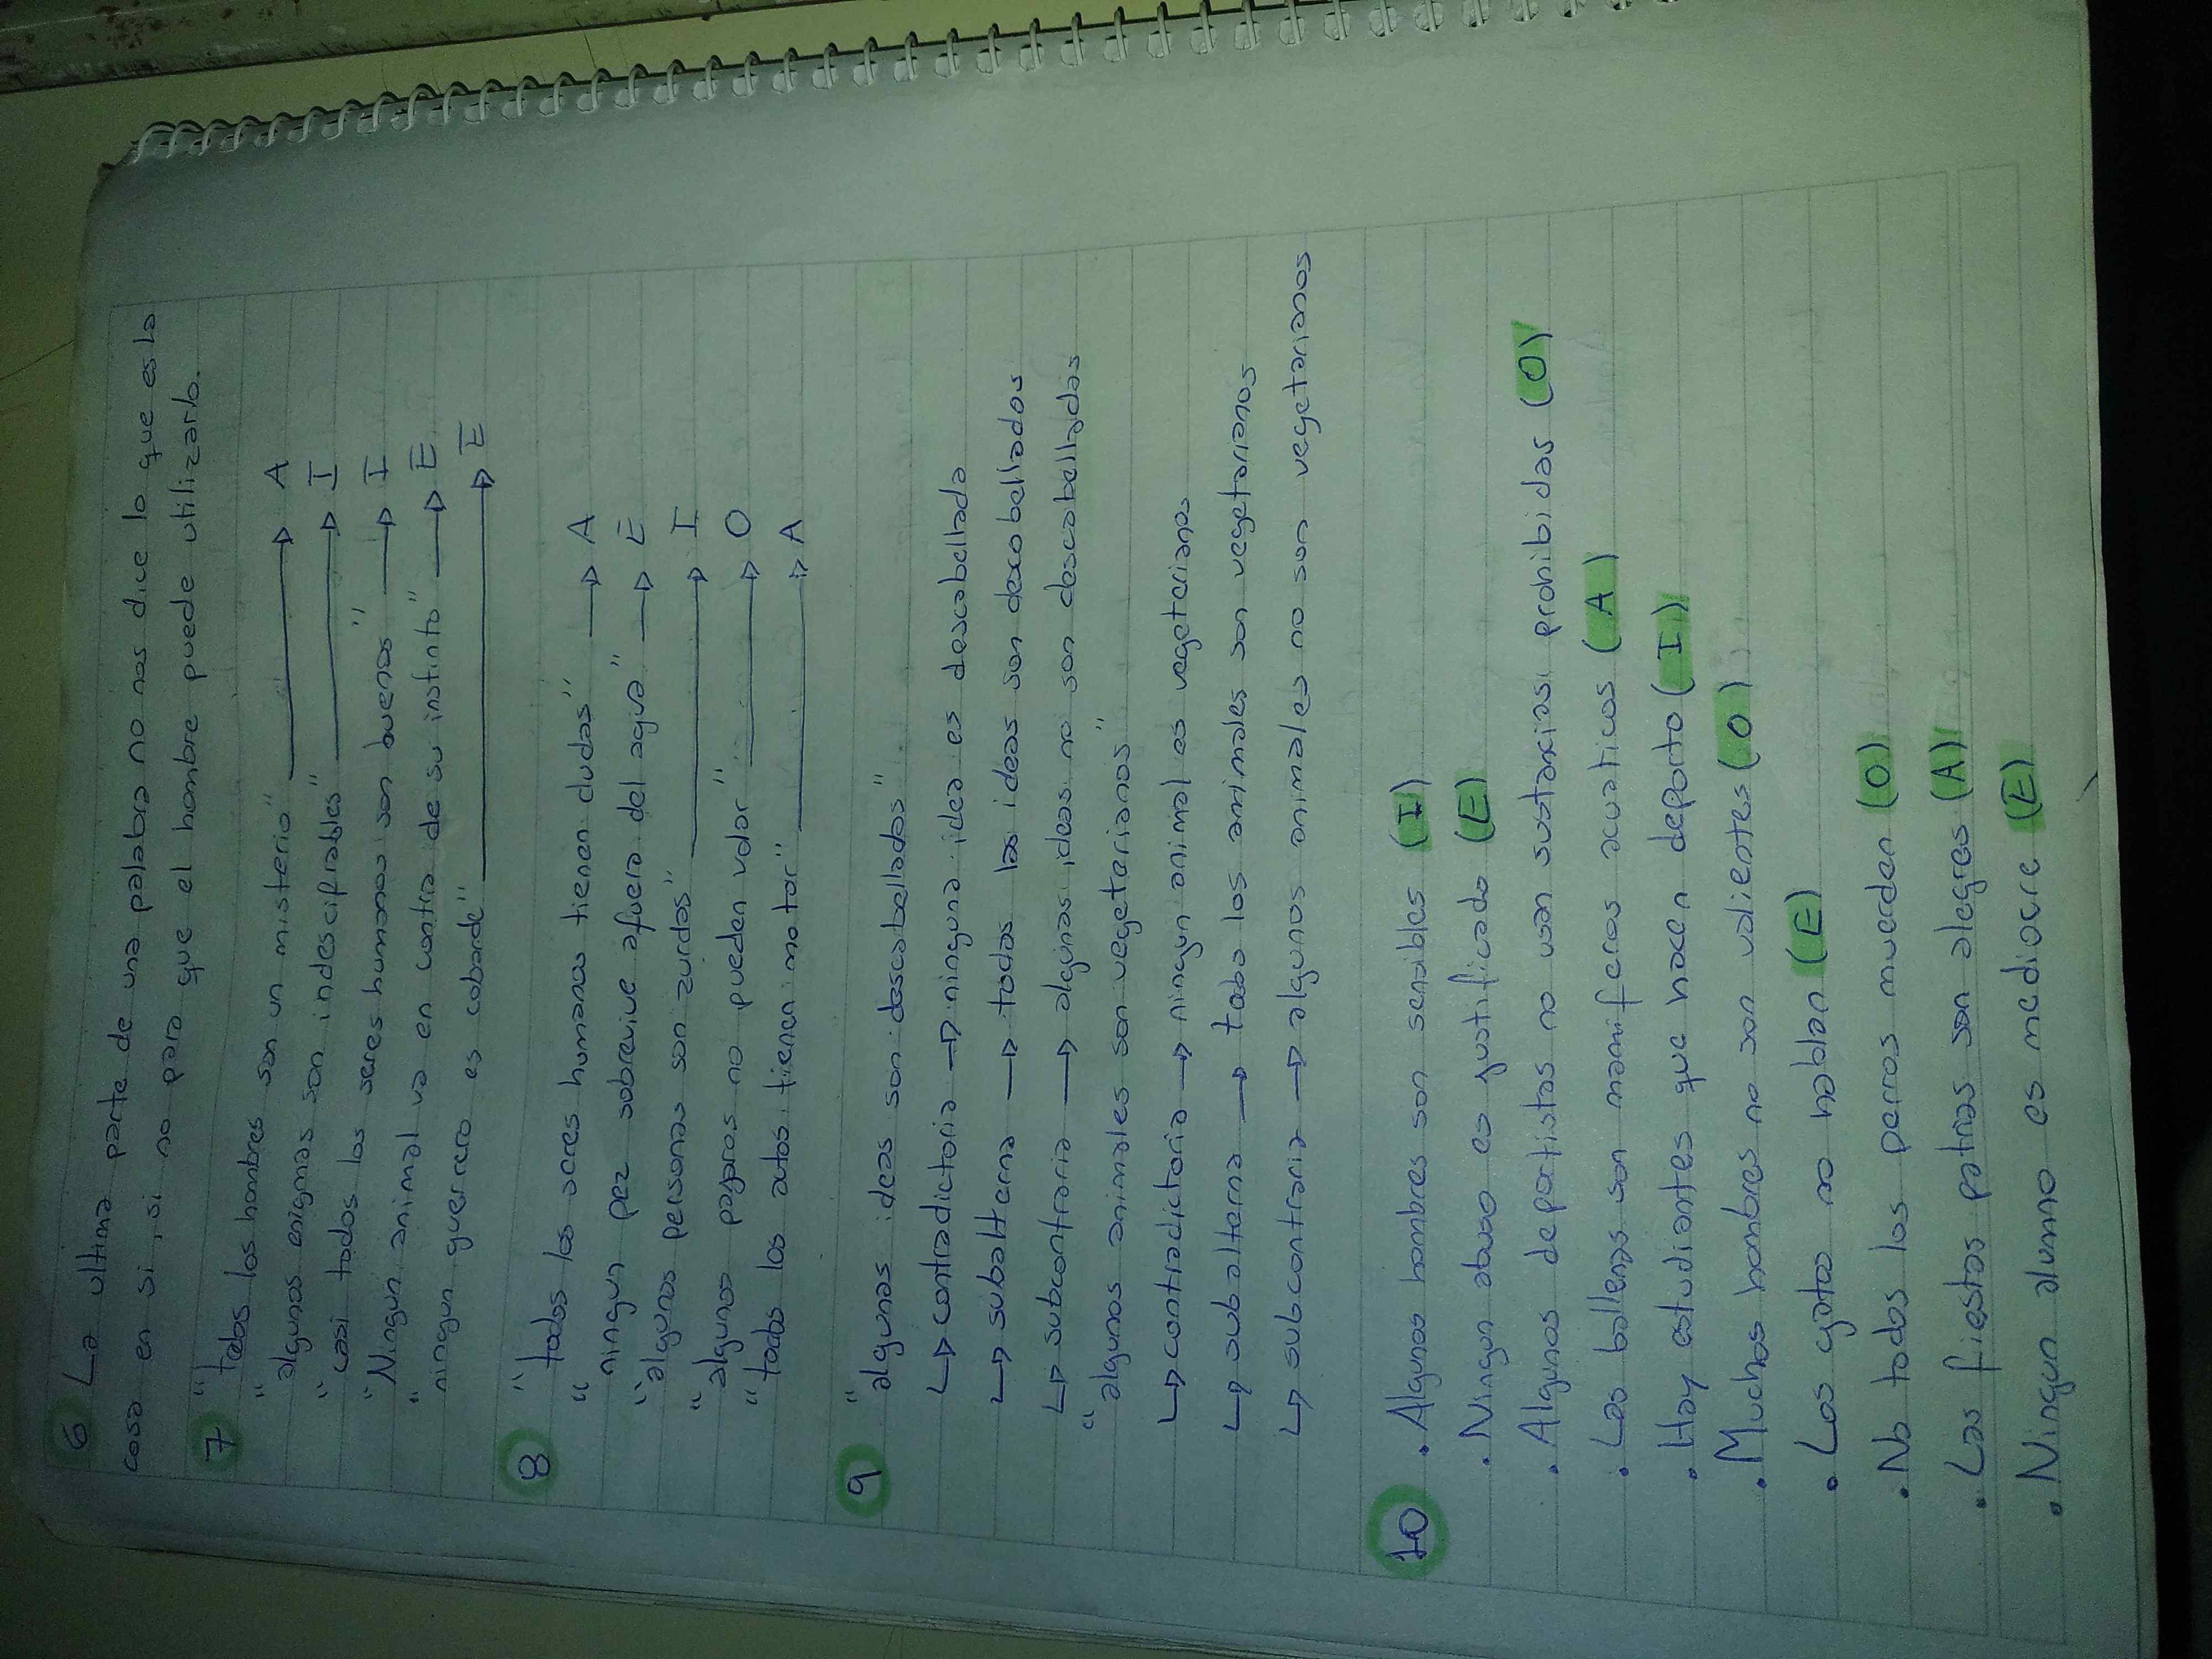 6 La ultima parte de una palabra no nos dice lo que es la
cosa en si, si no para que el hombre puede utilizarlo.
7 "todos los hombres son un misterio" → A
"algunos enigmas son indescifrables" → I
"casi todos los seres humanos son buenos" → I
"Ningun animal va en contra de su instinto" → E
"ningun guerrero es cobarde" → E
8 "todos los seres humanos tienen dudas" → A
"ningun pez sobrevive afuera del agua" → E
"algunas personas son zurdas" → I
"algunos pajaros no pueden volar" → O
"todos los autos tienen motor" → A
9 "algunas ideas son descabelladas"
↳ contradictoria → ninguna idea es descabellada
↳ subalterna → todas las ideas son descabelladas
↳ subcontraria → algunas ideas no son descabelladas
"algunos animales son vegeterianos"
↳ contradictoria → ningun animal es vegeteriano
↳ subalterna → todo los animales son vegetarianos
↳ subcontraria → algunos animales no son vegetarianos
10 . Algunos hombres son sensibles (I)
. Ningun abuso es justificado (E)
. Algunos deportistas no usan sustancias prohibidas (O)
. Las ballenas son mamiferos acuaticos (A)
. Hay estudiantes que hacen deporto (I)
. Muchos hombres no son valientes (O)
. Los gatos no hablan (E)
. No todos los perros muerden (O)
. Las fiestas patrias son alegres (A)
. Ningun alumno es mediocre (E)